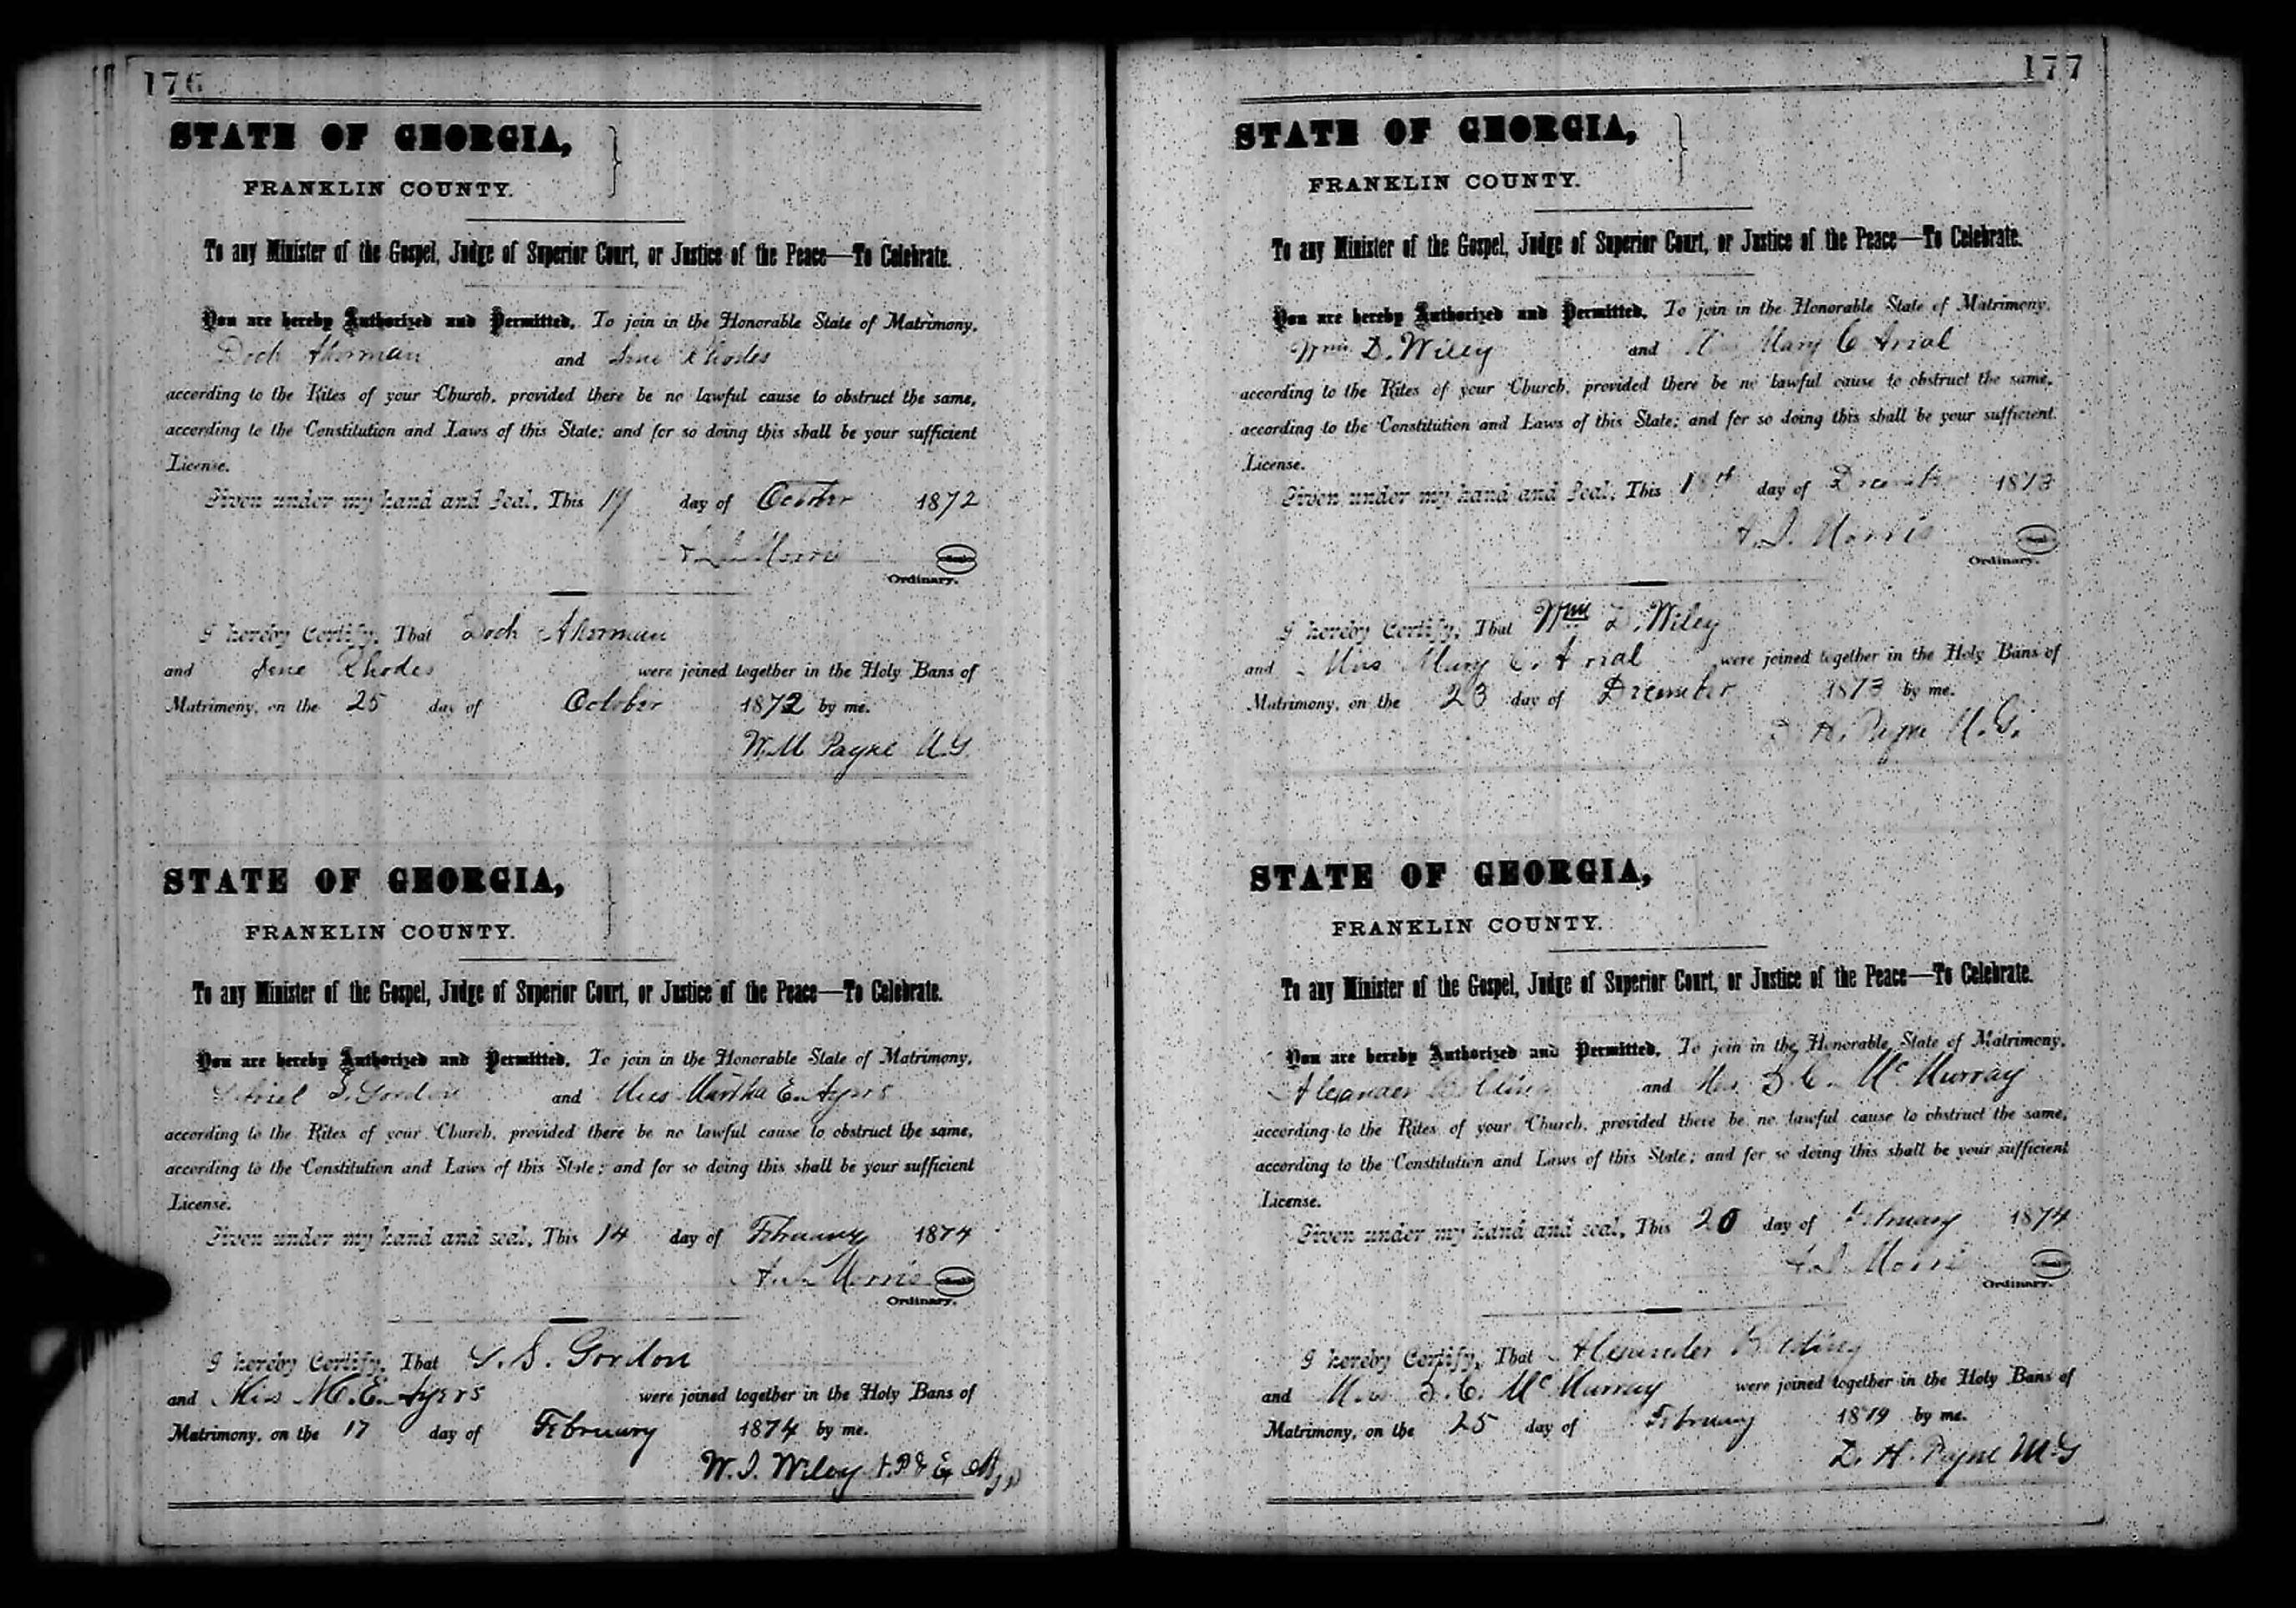 176
STATE OF GEORGIA,
FRANKLIN COUNTY.
To any Minister of the Gospel, Judge of Superior Court, or Justice of the Peace—To Celebrate.
You are hereby Authorized and Permitted, To join in the Honorable State of Matrimony,
Doch Akerman and Rhodes
according to the Rites of your Church, provided there be no lawful cause to obstruct the same,
according to the Constitution and Laws of this State; and for so doing this shall be your sufficient
License.
Given under my hand and Seal, This day of October 1872
Morris
Ordinary.
I hereby Certify, That Doch Akerman
and Rhodes were joined together in the Holy Bans of
Matrimony, on the 25 day of October 1872 by me.
W. M. Payne M.G.
STATE OF GEORGIA,
FRANKLIN COUNTY.
To any Minister of the Gospel, Judge of Superior Court, or Justice of the Peace—To Celebrate.
You are hereby Authorized and Permitted, To join in the Honorable State of Matrimony,
S. Gordon and Miss Martha E. Ayers
according to the Rites of your Church, provided there be no lawful cause to obstruct the same,
according to the Constitution and Laws of this State; and for so doing this shall be your sufficient
License.
Given under my hand and seal, This 14 day of February 1874
A. J. Morris
Ordinary.
I hereby Certify, That S. S. Gordon
and Miss M. E. Ayers were joined together in the Holy Bans of
Matrimony, on the 17 day of February 1874 by me.
W. J. Wiley
177
STATE OF GEORGIA,
FRANKLIN COUNTY.
To any Minister of the Gospel, Judge of Superior Court, or Justice of the Peace—To Celebrate.
You are hereby Authorized and Permitted, To join in the Honorable State of Matrimony,
Wm D. Wiley and Miss Mary C. Arial
according to the Rites of your Church, provided there be no lawful cause to obstruct the same,
according to the Constitution and Laws of this State; and for so doing this shall be your sufficient
License.
Given under my hand and Seal, This 18th day of December 1873
A. J. Morris
Ordinary.
I hereby Certify, That Wm D. Wiley
and Miss Mary C. Arial were joined together in the Holy Bans of
Matrimony, on the 23 day of December 1873 by me.
D. H. Payne M.G.
STATE OF GEORGIA,
FRANKLIN COUNTY.
To any Minister of the Gospel, Judge of Superior Court, or Justice of the Peace—To Celebrate.
You are hereby Authorized and Permitted, To join in the Honorable State of Matrimony,
Alexander and Mrs. McMurray
according to the Rites of your Church, provided there be no lawful cause to obstruct the same,
according to the Constitution and Laws of this State; and for so doing this shall be your sufficient
License.
Given under my hand and seal, This 20 day of February 1874
A. J. Morris
Ordinary.
I hereby Certify, That Alexander
and McMurray were joined together in the Holy Bans of
Matrimony, on the 25 day of February 1879 by me.
D. H. Payne M.G